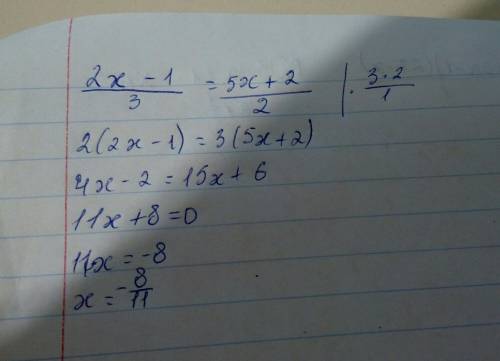 (2x - 1)/3 = (5x + 2)/2 | · (3·2)/1
2(2x - 1) = 3(5x + 2)
4x - 2 = 15x + 6
11x + 8 = 0
11x = -8
x = -8/11